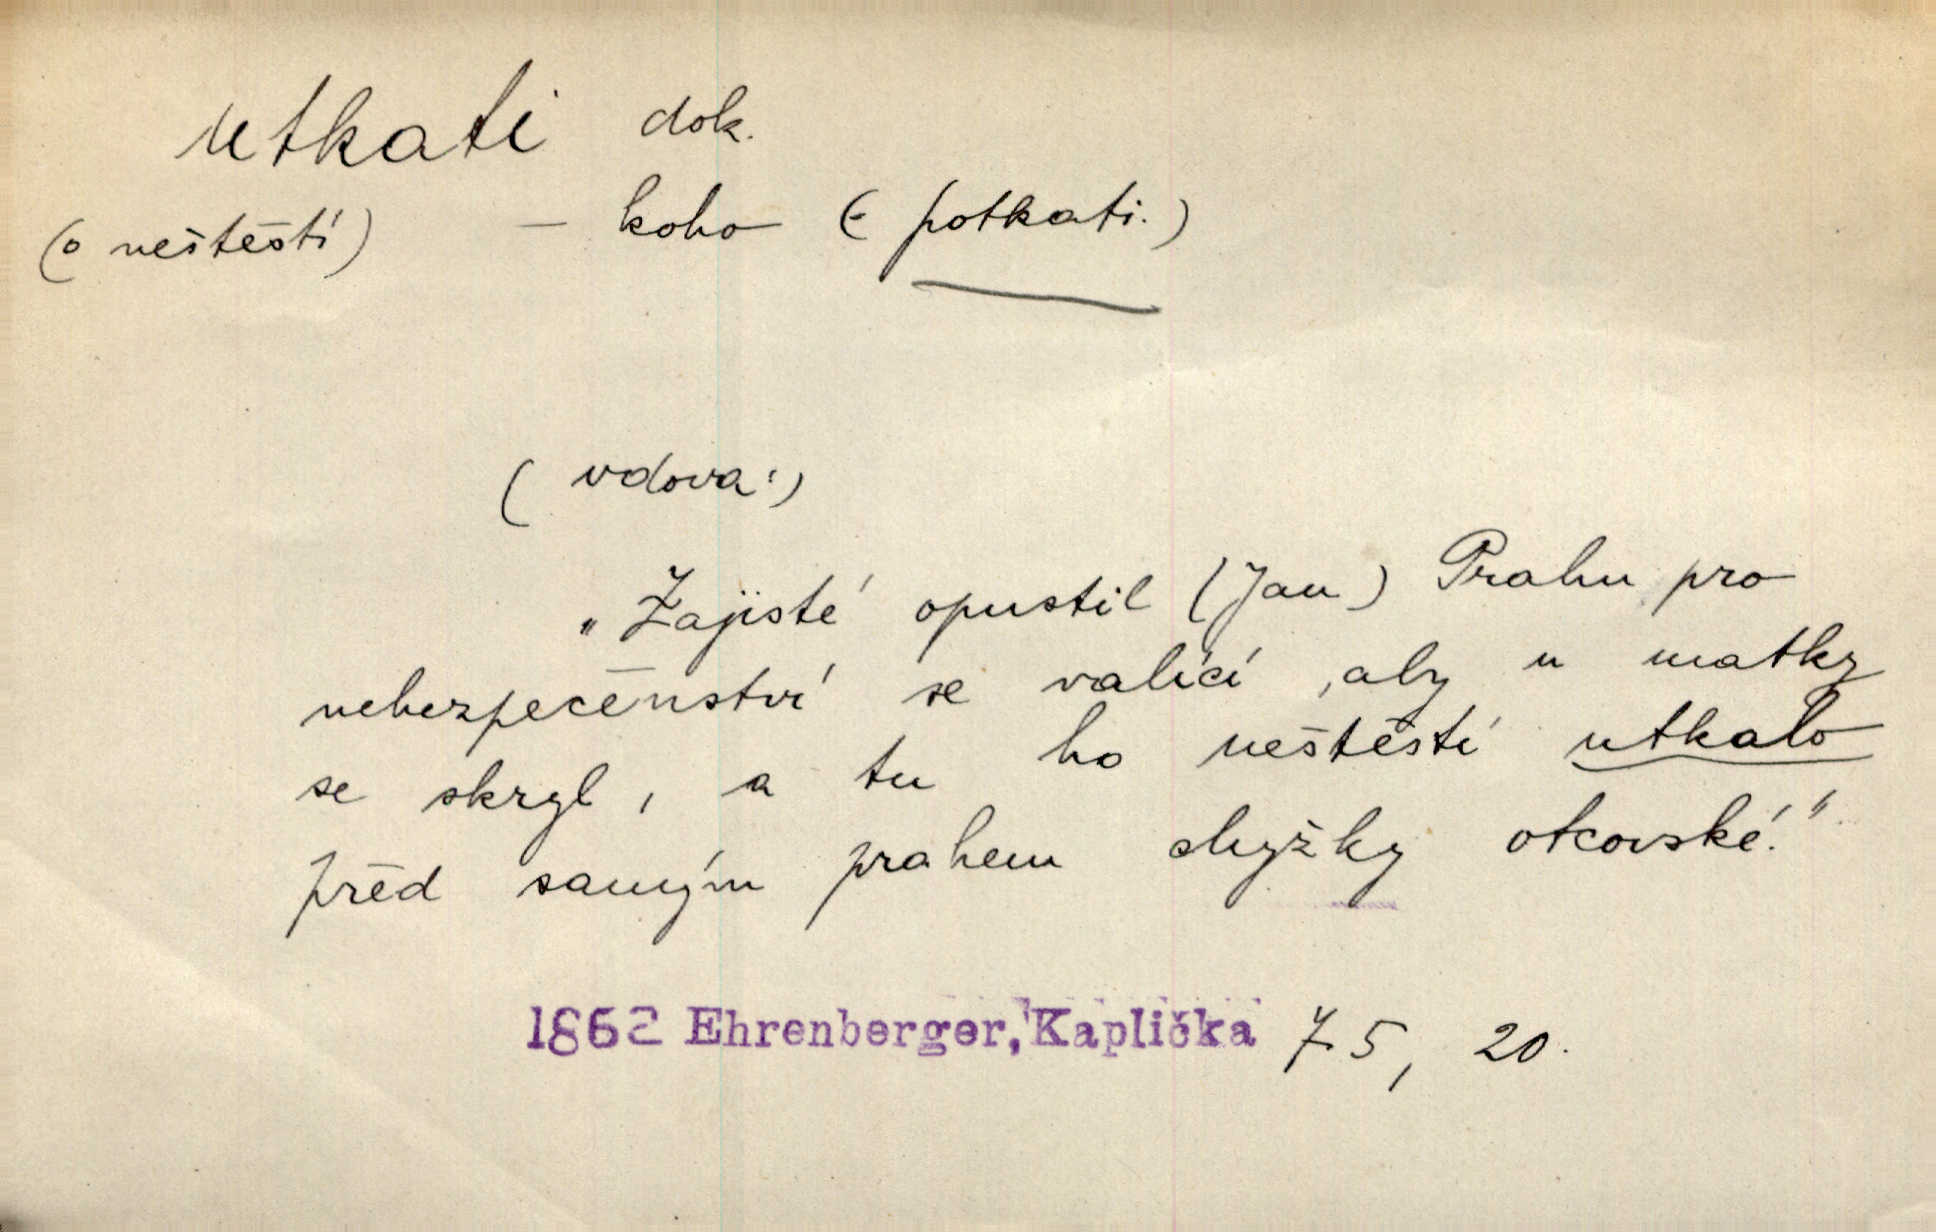 utkati dok.
(o neštěstí) – koho (= potkati.)
(vdova:)
„Zajisté opustil (Jan) Prahu pro
nebezpečenství se valící, aby u matky
se skryl, a tu ho neštěstí utkalo
před samým prahem chyžky otcovské."
1862 Ehrenberger, Kaplička 75, 20.